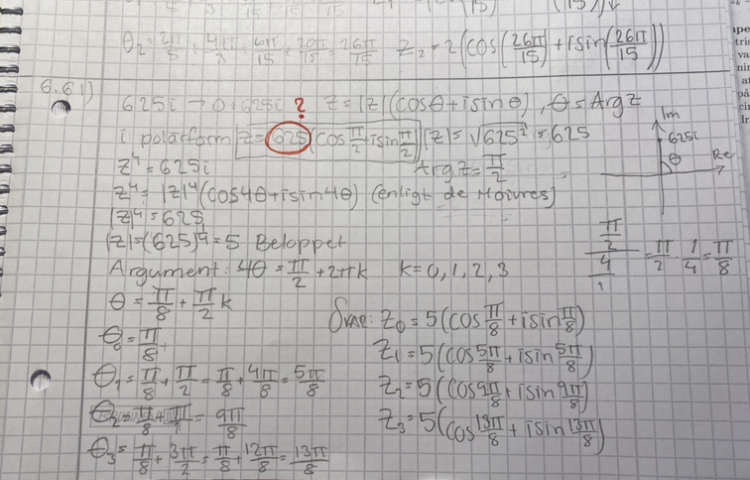 θ₂ = 2π/5 + 4π/3 = 6π/15 + 20π/15 = 26π/15 z₂ = 2(cos(26π/15) + i sin(26π/15))
6.61)
625i → 0+625i ? z = |z|(cosθ + i sinθ), θ = Arg z
i polarform z = 625(cos π/2 + i sin π/2) |z| = √625² = 625
z⁴ = 625i Arg z = π/2
z⁴ = |z|⁴(cos4θ + i sin4θ) (enligt de Moivres)
|z|⁴ = 625
|z| = (625)⁴ = 5 Beloppet
Argument: 4θ = π/2 + 2πk k = 0, 1, 2, 3
θ = π/8 + π/2 k
θ₀ = π/8
θ₁ = π/8 + π/2 = π/8 + 4π/8 = 5π/8
θ₂ = π/8 + π = 9π/8
θ₃ = π/8 + 3π/2 = π/8 + 12π/8 = 13π/8
Im
625i
θ
Re
π/2 / 4/1 = π/2 · 1/4 = π/8
Svar: z₀ = 5(cos π/8 + i sin π/8)
z₁ = 5(cos 5π/8 + i sin 5π/8)
z₂ = 5(cos 9π/8 + i sin 9π/8)
z₃ = 5(cos 13π/8 + i sin 13π/8)